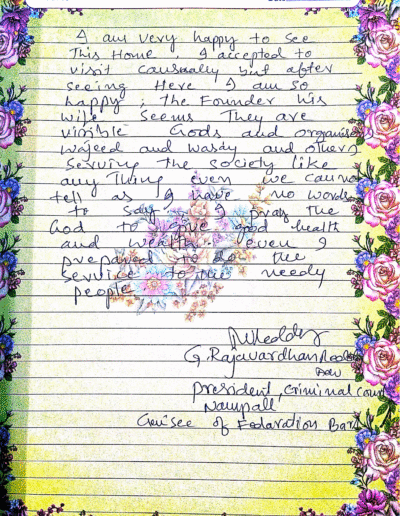 I am very happy to see
This Home, I accepted to
visit causually but after
seeing Here I am so
happy, the Founder his
wife seems They are
visible Gods and organisors
wajeed and wasdy and others
serving the society like
any Thing even we cannot
tell as I have no words
to say, I pray the
God to give good health
and wealth. even I
prepared to do the
service to the needy
people
G. Rajavardhan Reddy
president, Criminal court
Nampall
of Fedaration Bar